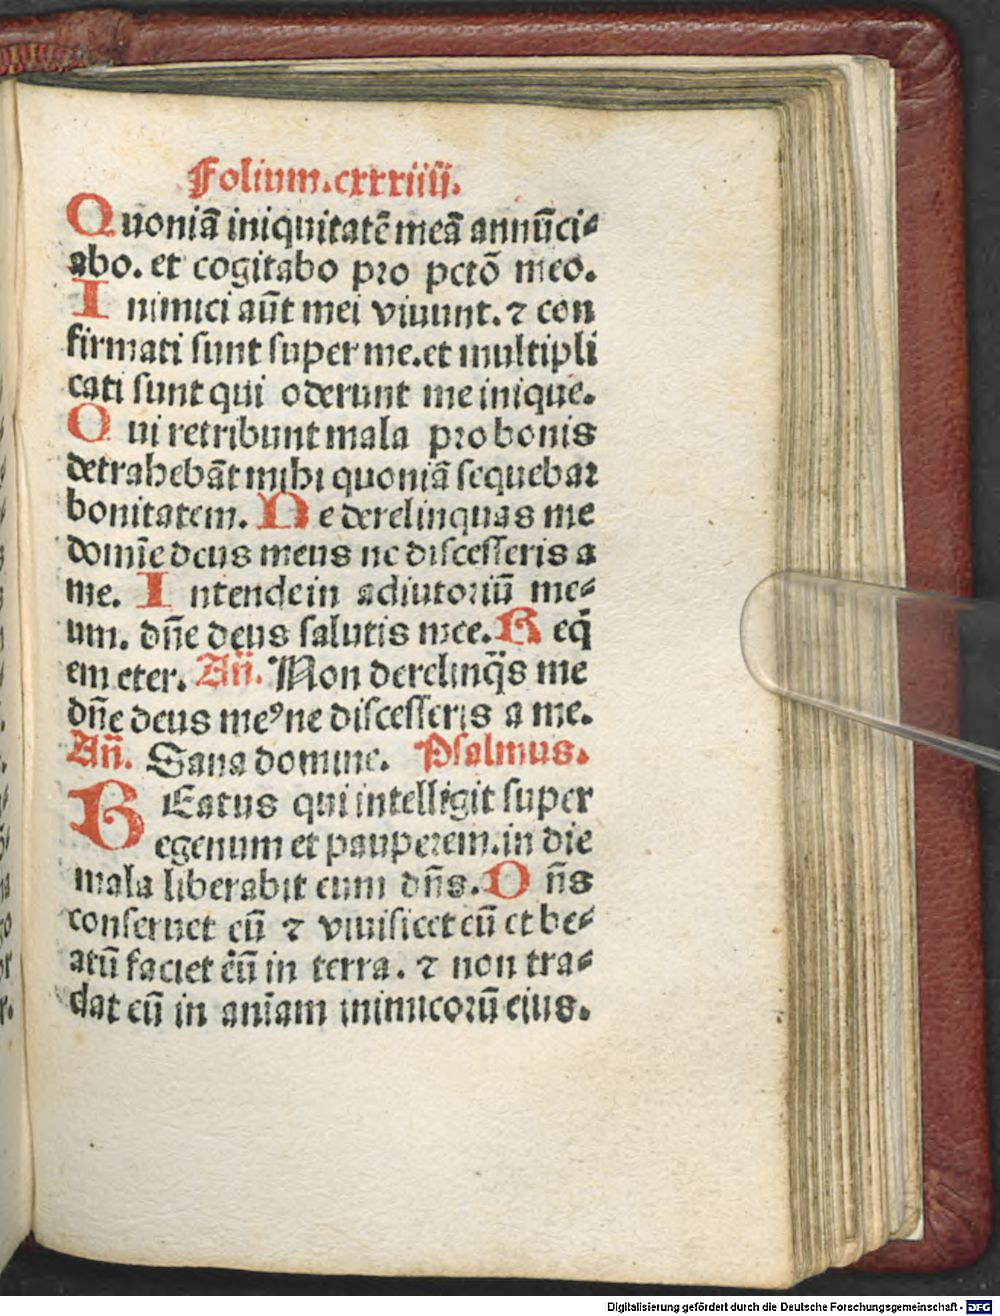 Folium.cxxxiiij.
Quoniā iniquitatē meā annūci⸗
abo. et cogitabo pro pctō meo.
Inimici aūt mei viuunt. ⁊ con
firmati sunt super me. et multipli
cati sunt qui oderunt me inique.
Qui retribunt mala pro bonis
detrahebāt mihi quoniā sequebar
bonitatem. Ne derelinquas me
domīe deus meus ne discesseris a
me. Intende in adiutoriū me⸗
um. dn̄e deus salutis mee. Reꝗ̄
em eter. An̄. Non derelinq̄s me
dn̄e deus meꝰ ne discesseris a me.
An̄. Sana domine. Psalmus.
BEatus qui intelligit super
egenum et pauperem. in die
mala liberabit eum dn̄s. Dn̄s
conseruet eū ⁊ viuificet eū et be⸗
atū faciet eū in terra. ⁊ non tra⸗
dat eū in anīam inimicorū eius.
Digitalisierung gefördert durch die Deutsche Forschungsgemeinschaft - DFG